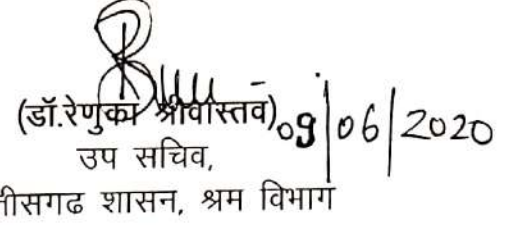 (डॉ.रेणुका श्रीवास्तव) 09/06/2020
उप सचिव,
त्तीसगढ शासन, श्रम विभाग